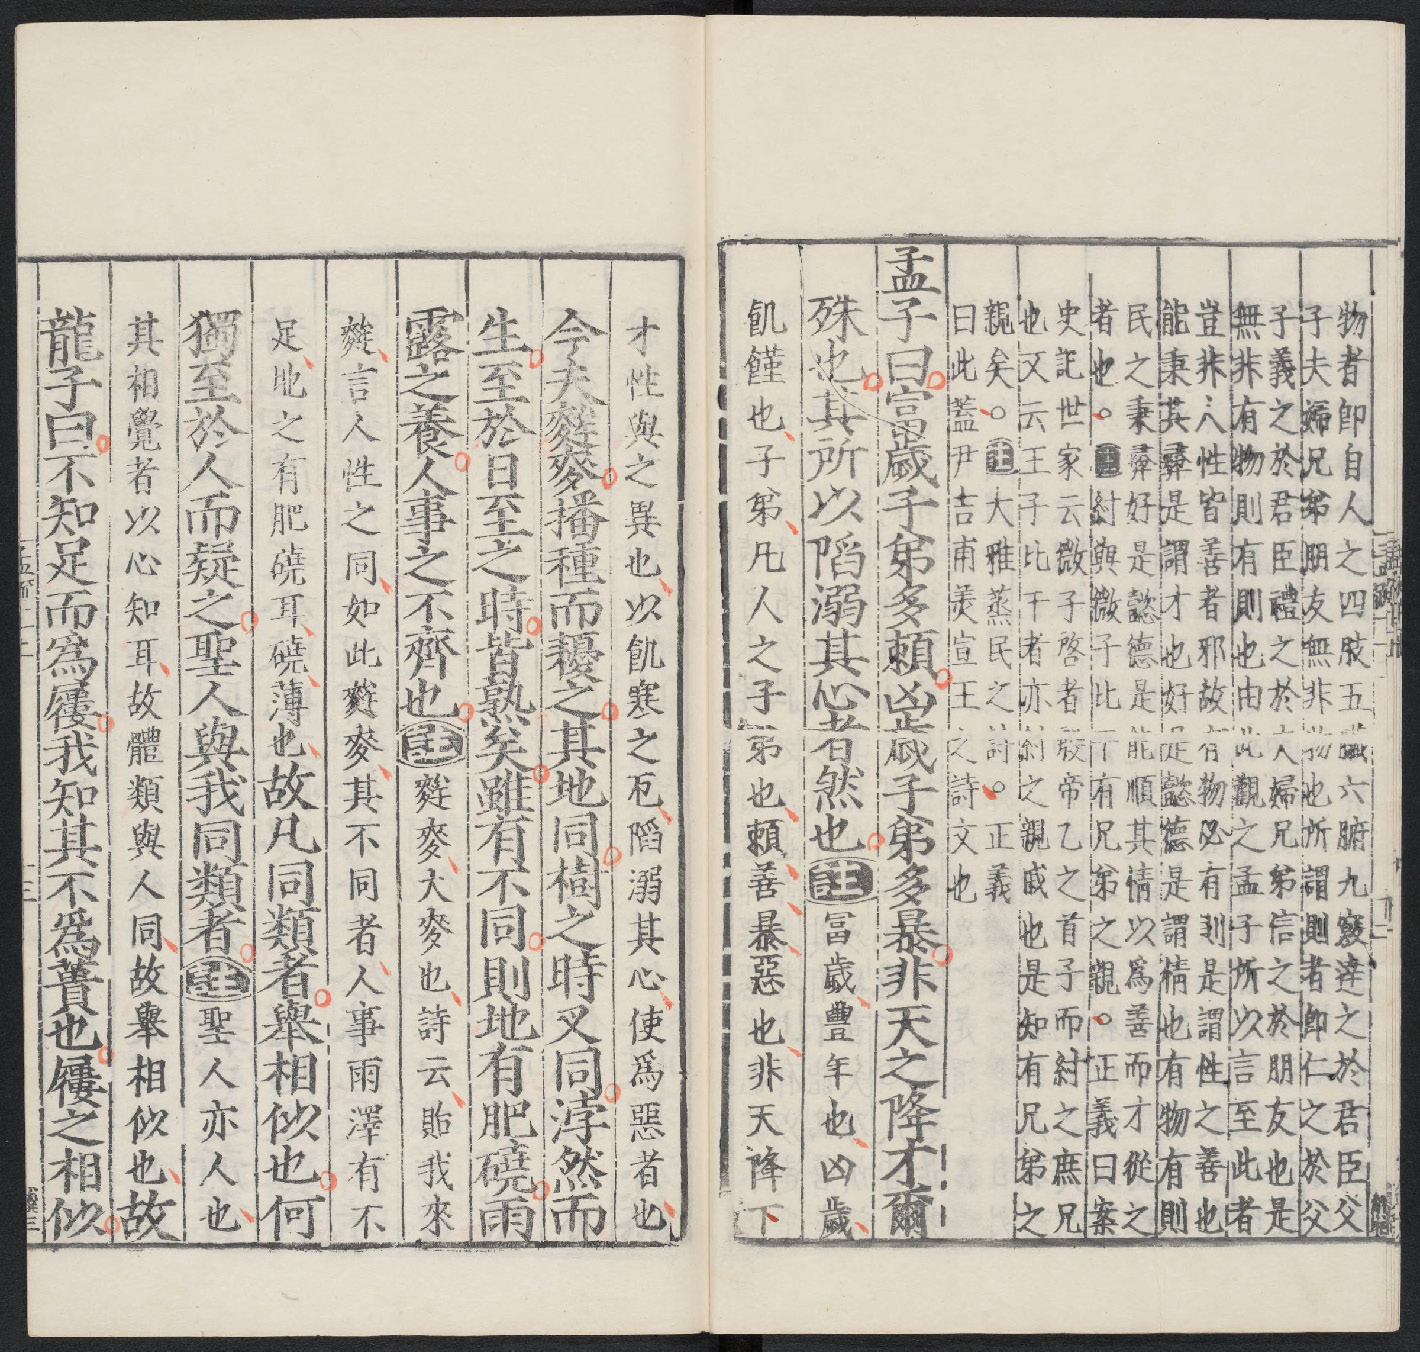 物者即自人之四肢五臟六腑九竅達之於君臣父
子夫婦兄弟朋友無非物也所謂則者即仁之於父
子義之於君臣禮之於夫婦兄弟信之於朋友也是
無非有物則有則也由此觀之孟子所以言至此者
豈非人性皆善者邪故有物必有則是謂性之善也
能秉其彝是謂才也好是懿德是謂情也有物有則
民之秉彝好是懿德是能順其情以為善而才從之
者也○註紂與微子比干有兄弟之親○正義曰案
史記世家云微子啓者殷帝乙之首子而紂之庶兄
也又云王子比干者亦紂之親戚也是知有兄弟之
親矣○註大雅蒸民之詩○正義
曰此蓋尹吉甫羙宣王之詩文也
孟子曰富歲子弟多賴凶歲子弟多暴非天之降才爾
殊也其所以陷溺其心者然也註富歲豊年也凶歲
飢饉也子弟凡人之子弟也賴善暴惡也非天降下
才性與之異也以飢寒之厄陷溺其心使為惡者也
今夫麰麥播種而耰之其地同樹之時又同浡然而
生至於日至之時皆熟矣雖有不同則地有肥磽雨
露之養人事之不齊也註麰麥大麥也詩云貽我來
麰言人性之同如此麰麥其不同者人事雨澤有不
足地之有肥磽耳磽薄也故凡同類者舉相似也何
獨至於人而疑之聖人與我同類者註聖人亦人也
其相覺者以心知耳故體類與人同故舉相似也故
龍子曰不知足而為屨我知其不為蕢也屨之相似